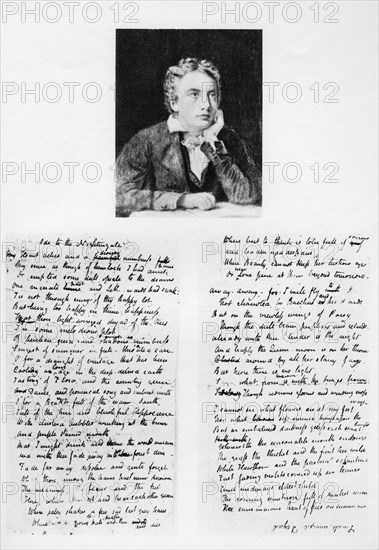 Ode to the Nightingale
My Heart aches and a drowsy numbness falls
My sense as though of hemlock I had drunk
Or emptied some dull opiate to the drains
One minute and Lethe-wards had sunk:
Tis not through envy of thy happy lot
But being too happy in thine happiness
That thou light winged dryad of the trees
In some melodious plot
Of beechen green, and shadows numberless
Singest of summer in full-throated ease.
O for a draught of vintage that has been
Cooling an age in the deep delved earth
Tasting of Flora, and the country green
And Dance, and provencal song and sunburnt mirth
O for a Beaker full of the warm South
Full of the true and blushful Hippocrene
With cluster'd bubbles winking at the brim
And purple stained mouth
That I might drink and leave the world unseen
And with thee fade away into the forest dim
Fade far away dissolve and quite forget
What thou among the leaves hast never known
The weariness, the fever and the fret
Here where men sit and hear each other groan
Where palsy shakes a few sad last grey hairs
Where youth grows pale and thin and dies
Where but to think is to be full of sorrow
And leaden eyed despairs
Where Beauty cannot keep her lustrous eyes
Or new Love pine at them beyond tomorrow.
Away-away-for I will fly to thee
Not charioted by Bacchus and his Pards
But on the viewless wings of Poesy
Though the dull brain perplexes and retards
Already with thee tender is the night
And haply the Queen moon is on her throne
Cluster'd around by all her starry fays
But here there is no light
Save what from heaven is with the breezes blown
Through verdurous glooms and winding mossy ways
I cannot see what flowers are at my feet
Nor what soft incense hangs upon the boughs
But in embalmed darkness guess each sweet
Wherewith the seasonable month endows
The grass the thicket and the fruit tree wild
White Hawthorn and the pastoral eglantine
Fast fading violets covered up in leaves
And mid May's eldest child
The coming musk rose full of dewy wine
The murmurous haunt of flies on summer eves